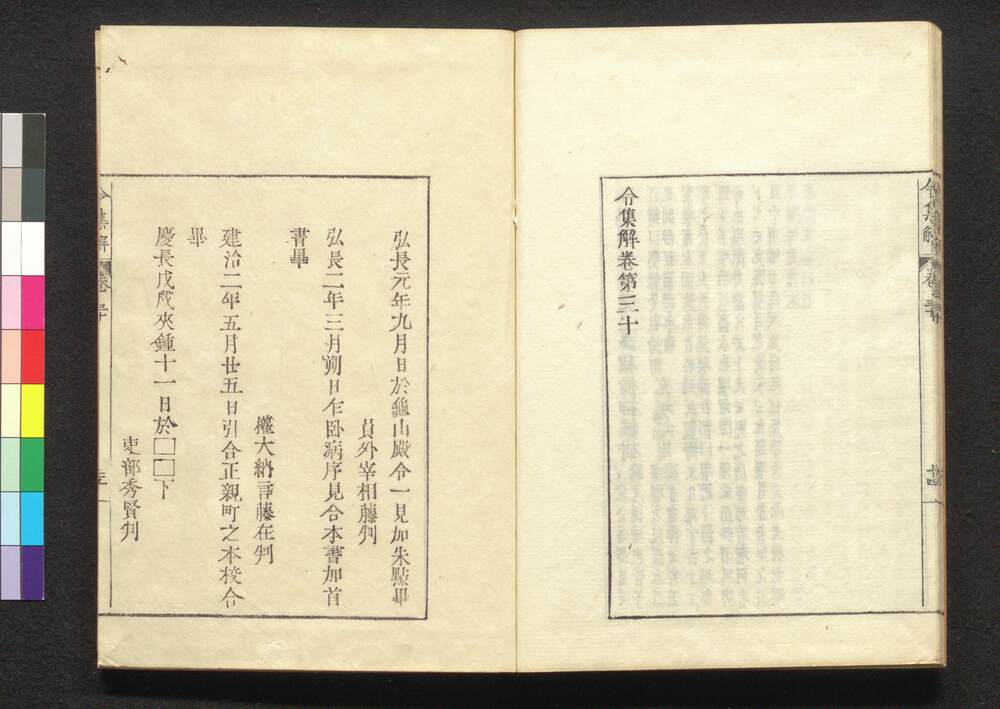 令集解 卷三十
廿四
令集解卷第三十
弘長元年九月日於龜山殿令一見加朱點畢
員外宰相藤判
弘長二年三月朔日乍卧病序見合本書加首
書畢
權大納言藤在判
建治二年五月廿五日引合正親町之本校合
畢
慶長戊戌夾鍾十一日於□□下
吏部秀賢判
令集解 卷三十